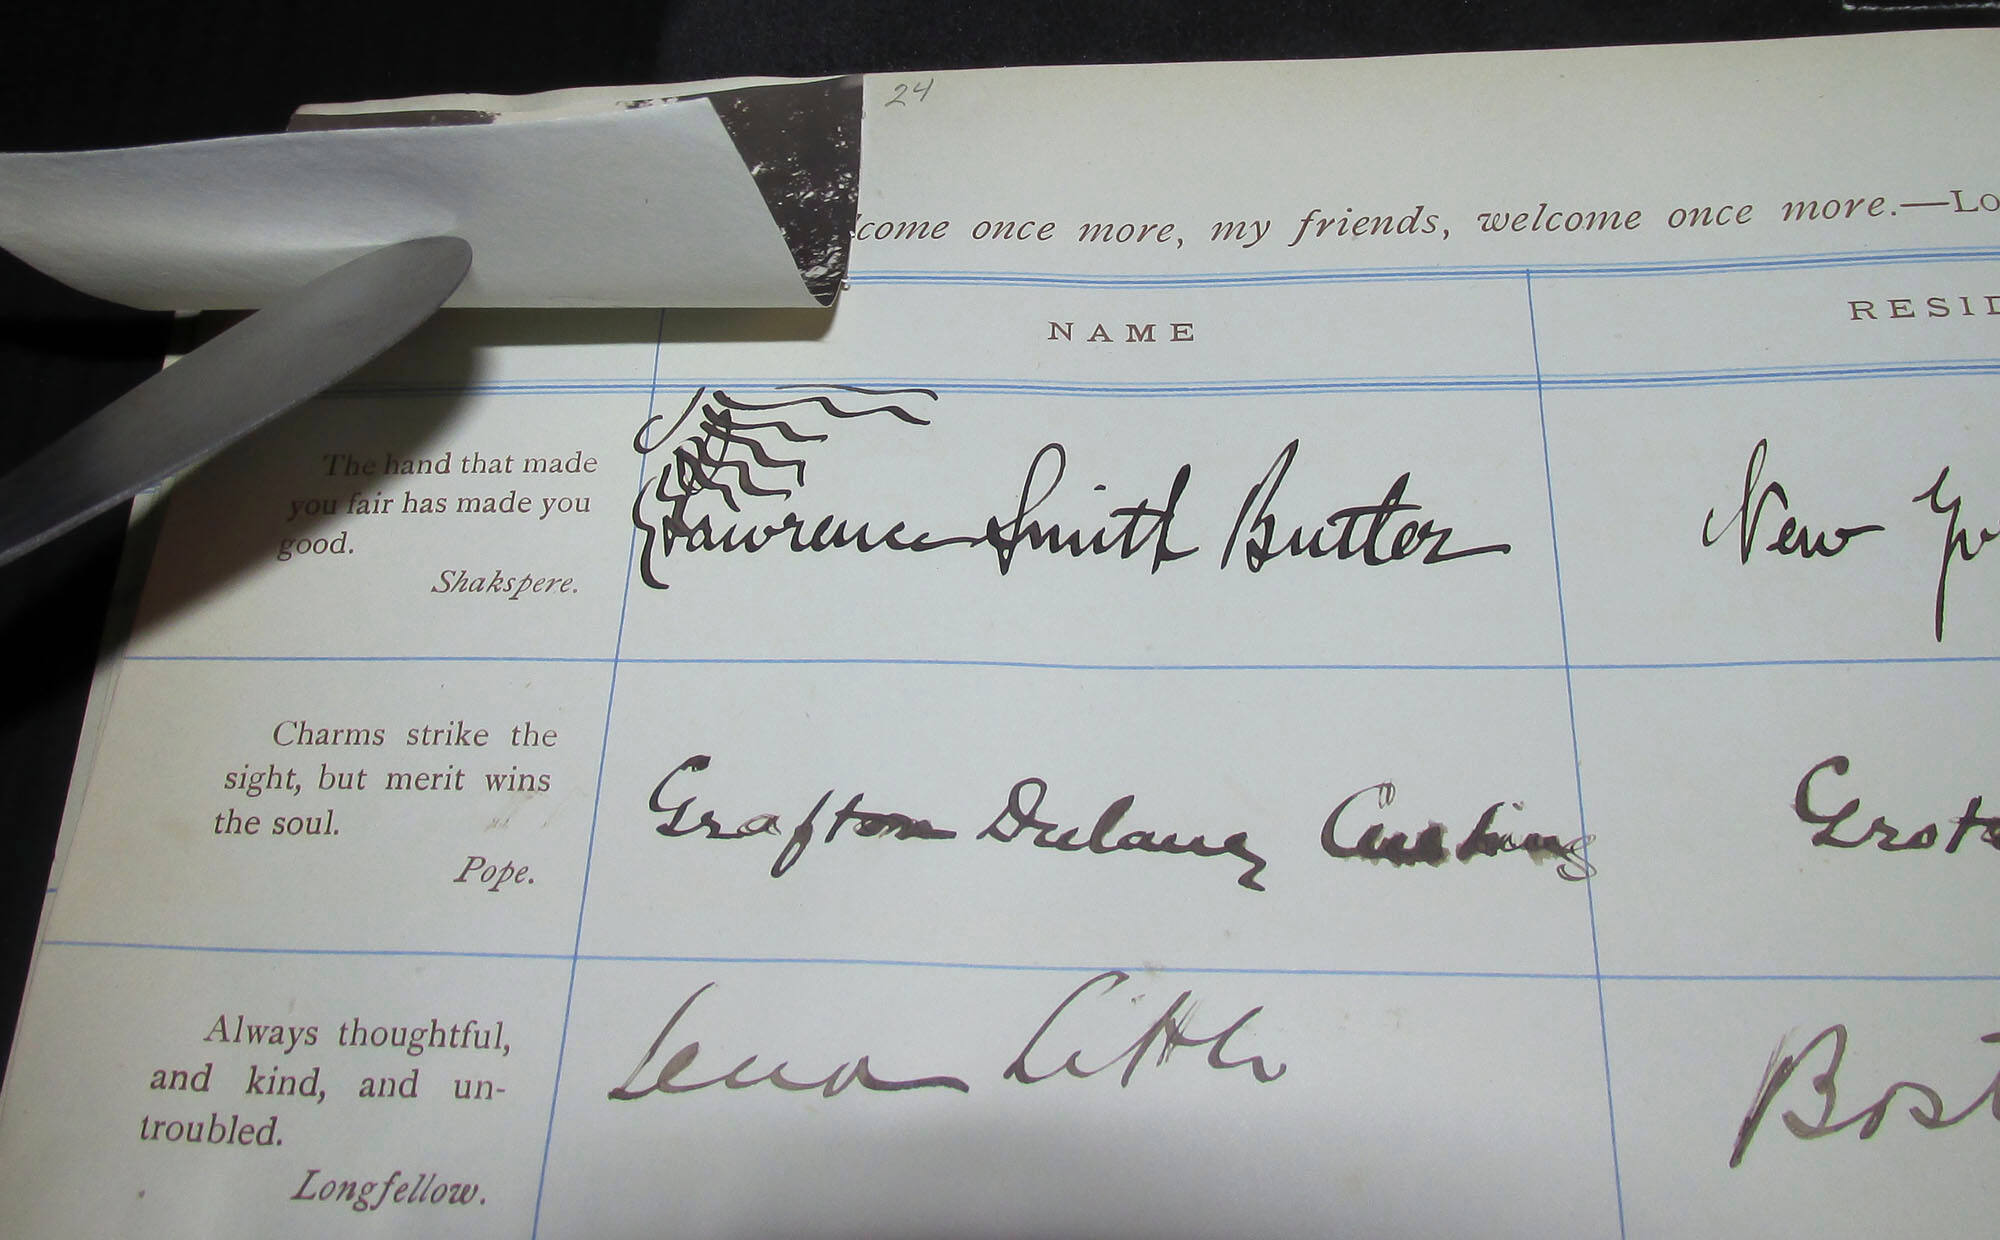 24
come once more, my friends, welcome once more.—Lo
NAME
RESID
The hand that made
you fair has made you
good.
Shakspere.
Lawrence Smith Butler
New Yo
Charms strike the
sight, but merit wins
the soul.
Pope.
Grafton Dulany Cushing
Groto
Always thoughtful,
and kind, and un-
troubled.
Longfellow.
Lena Little
Bost